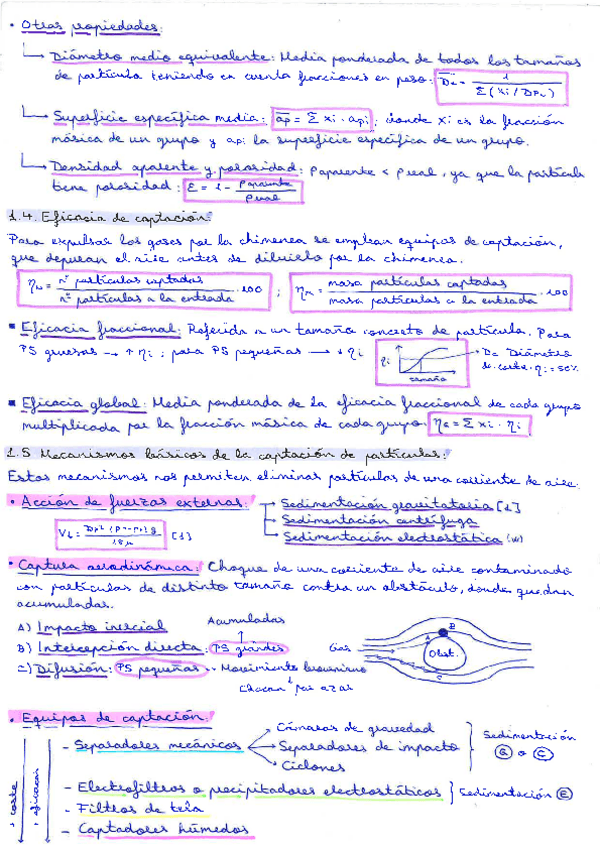 • Otras propiedades:
↳ Diámetro medio equivalente: Media ponderada de todos los tamaños
de partícula teniendo en cuenta fracciones en peso: D̄ = 1 / Σ (xi / Dpi)
↳ Superficie específica media: āp = Σ xi · api; donde xi es la fracción
másica de un grupo y api la superficie específica de un grupo.
↳ Densidad aparente y porosidad: ρ aparente < ρ real, ya que la partícula
tiene porosidad: ε = 1 - ρ aparente / ρ real
1.4. Eficacia de captación
Para expulsar los gases por la chimenea se emplean equipos de captación,
que depuran el aire antes de diluirlo por la chimenea.
ηN = nº partículas captadas / nº partículas a la entrada · 100 ; ηm = masa partículas captadas / masa partículas a la entrada · 100
▪ Eficacia fraccional: Referida a un tamaño concreto de partícula. Para
PS gruesas → ↑ ηi ; para PS pequeñas → ↓ ηi
ηi tamaño
Dc Diámetro
de corte. ηi = 50%
▪ Eficacia global: Media ponderada de la eficacia fraccional de cada grupo
multiplicada por la fracción másica de cada grupo. ηG = Σ xi · ηi
1.5 Mecanismos básicos de la captación de partículas:
Estos mecanismos nos permiten eliminar partículas de una corriente de aire.
• Acción de fuerzas externas: → Sedimentación gravitatoria [1]
→ Sedimentación centrífuga
→ Sedimentación electrostática (w)
[1]
• Captura aerodinámica: Choque de una corriente de aire contaminado
con partículas de distinto tamaño contra un obstáculo, donde quedan
acumuladas.
A) Impacto inercial
Acumuladas
B) Intercepción directa: PS grandes
C) Difusión: PS pequeñas → Movimiento browniano
Chocan por azar
Gas A B C Obst.
• Equipos de captación:
- Separadores mecánicos
→ Cámaras de gravedad
→ Separadores de impacto
→ Ciclones
Sedimentación
G o C
- Electrofiltros o precipitadores electrostáticos } Sedimentación E
- Filtros de tela
- Captadores húmedos
+ coste
+ eficacia